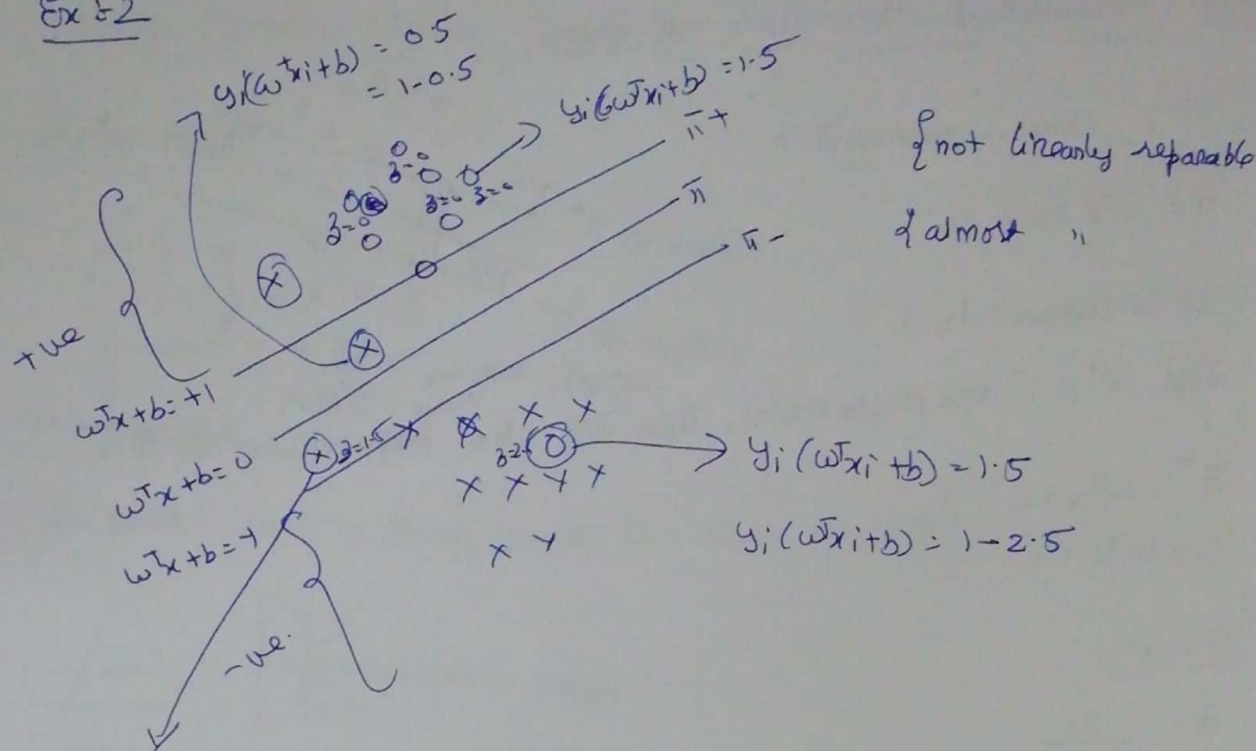 Ex :- 2
yi(wᵀxi+b) = 0.5
= 1-0.5
yi(wᵀxi+b) = 1.5
π+
{not linearly separable
π
{almost "
π-
z=0
z=0 z=0
z=0
+ve
wᵀx+b=+1
wᵀx+b=0
wᵀx+b=-1
z=1.5
z=2.5
yi(wᵀxi+b) = 1.5
yi(wᵀxi+b) = 1-2.5
-ve.